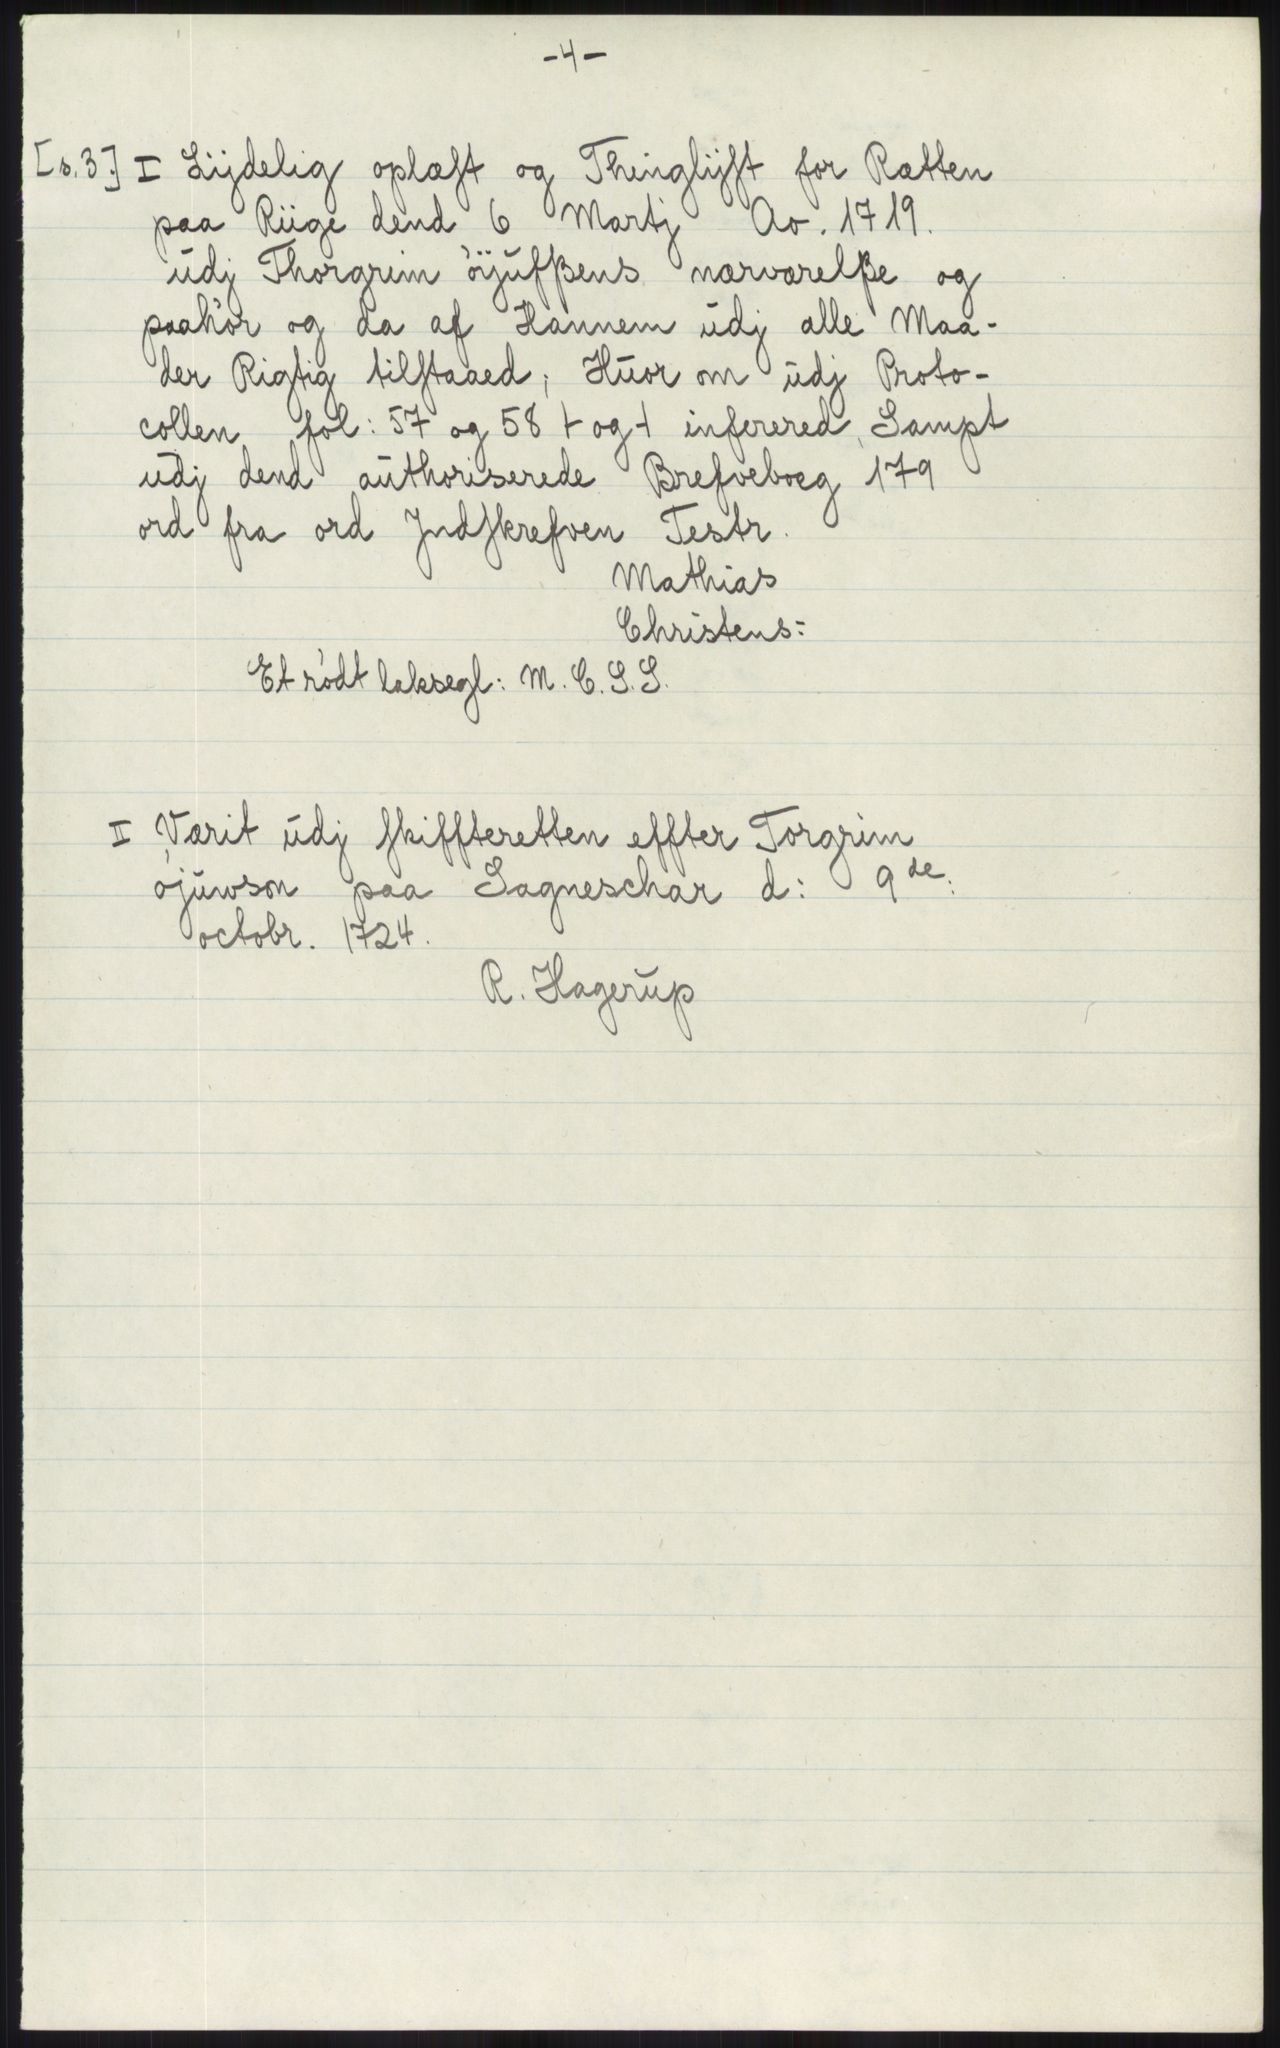 -4-
[s.3.] I Lijdelig oplæst og Thinglijst for Rætten
paa Riige dend 6 Martj Ao. 1719.
udj Thorgrim öijufßens nærværelße og
paahör og da af Hannem udj alle Maa-
der Rigtig tilstaaed; Huor om udj Proto-
collen fol: 57 og 58 t og t inferered, Sampt
udj dend authoriserede Brefveboeg 179
ord fra ord Jndskrefven Testr.
Mathias
Christens:
Et rödt laksegl: M. C. S. S.
I Værit udj skiffteretten effter Torgrim
öjuwson paa Sagneschar d: 9de:
octobr. 1724.
R. Hagerup